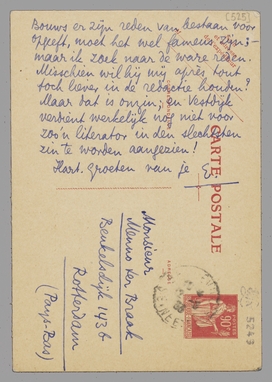 [525]
Bouws er zijn reden van bestaan voor
opgeeft, moet het wel fameus zijn;-
maar ik zoek naar de ware reden.
Misschien wil hij mij après tout
toch liever in de redactie houden?
Maar dat is onzin; en Vestdijk
verdient werkelijk nog niet voor
zoo'n literator in den slechtsten
zin te worden aangezien!
Hart. groeten van je E.
CARTE POSTALE
Monsieur
Menno ter Braak
Beukelsdijk 143b
Rotterdam
(Pays-Bas)
90c
5243